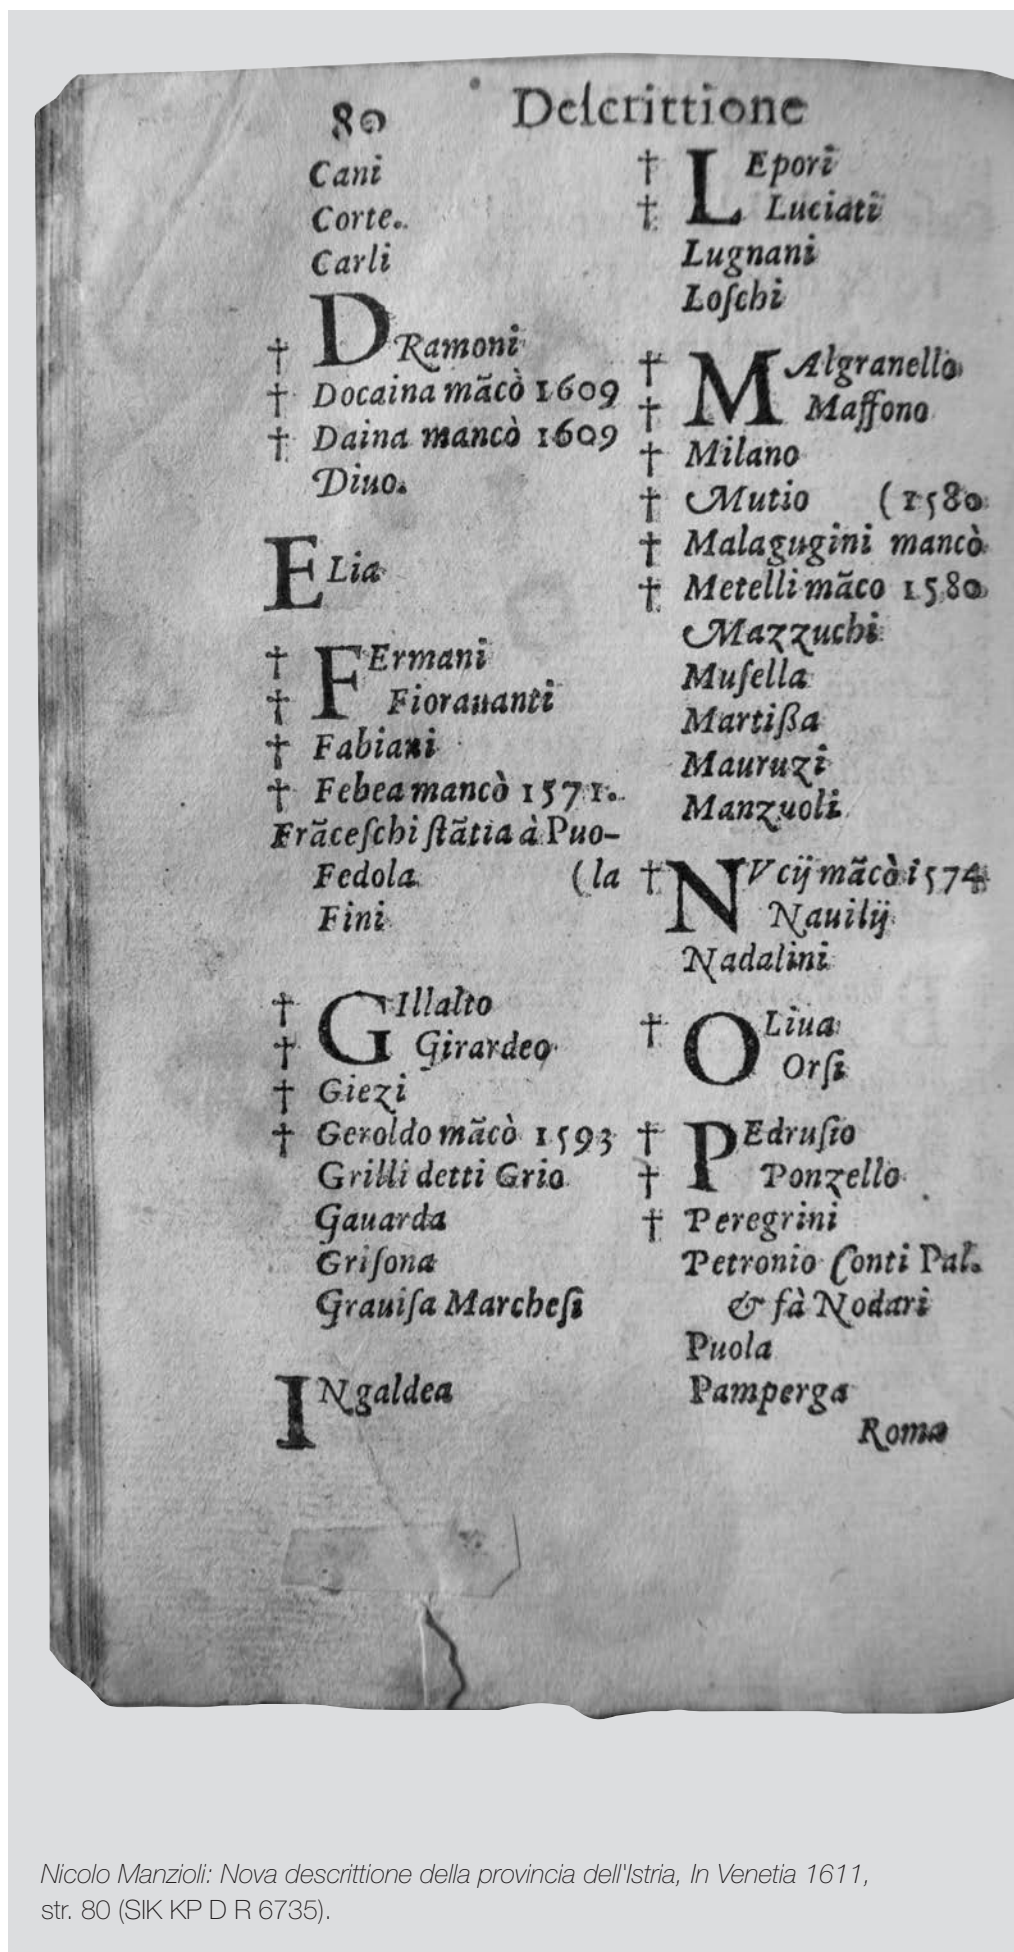 80 Descrittione
Cani
Corte.
Carli
† DRamoni
† Docaina mãcò 1609
† Daina mancò 1609
Diuo.
ELia
† FErmani
† Fiorauanti
† Fabiani
† Febea mancò 1571.
Frãceſchi ſtãtia à Puo-
Fedola (la
Fini
† GIllalto
† Girardeo
† Giezi
† Geroldo mãcò 1593
Grilli detti Grio
Gauarda
Griſona
Grauiſa Marcheſi
INgaldea
† LEpori
† Luciati
Lugnani
Loſchi
† MAlgranello
† Maffono
† Milano
† Mutio (1580
† Malagugini mancò
† Metelli mãco 1580
Mazzuchi
Muſella
Martißa
Mauruzi
Manzuoli
† NVcij mãcò 1574
Nauilij
Nadalini
† OLiua
Orſi
† PEdruſio
† Ponzello
† Peregrini
Petronio Conti Pal.
& fà Nodari
Puola
Pamperga
Roma
Nicolo Manzioli: Nova descrittione della provincia dell'Istria, In Venetia 1611,
str. 80 (SIK KP D R 6735).